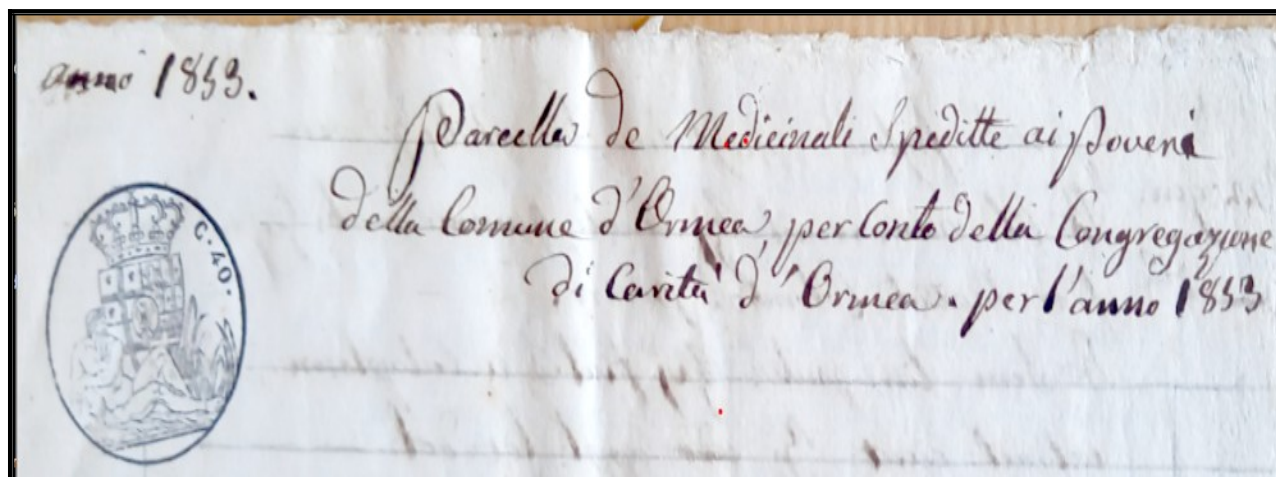 anno 1853.
Parcella de Medicinali Speditte ai Poveri
della Comune d'Ormea, per Conto della Congregazione
di Carità d'Ormea. per l'anno 1853
C. 40.